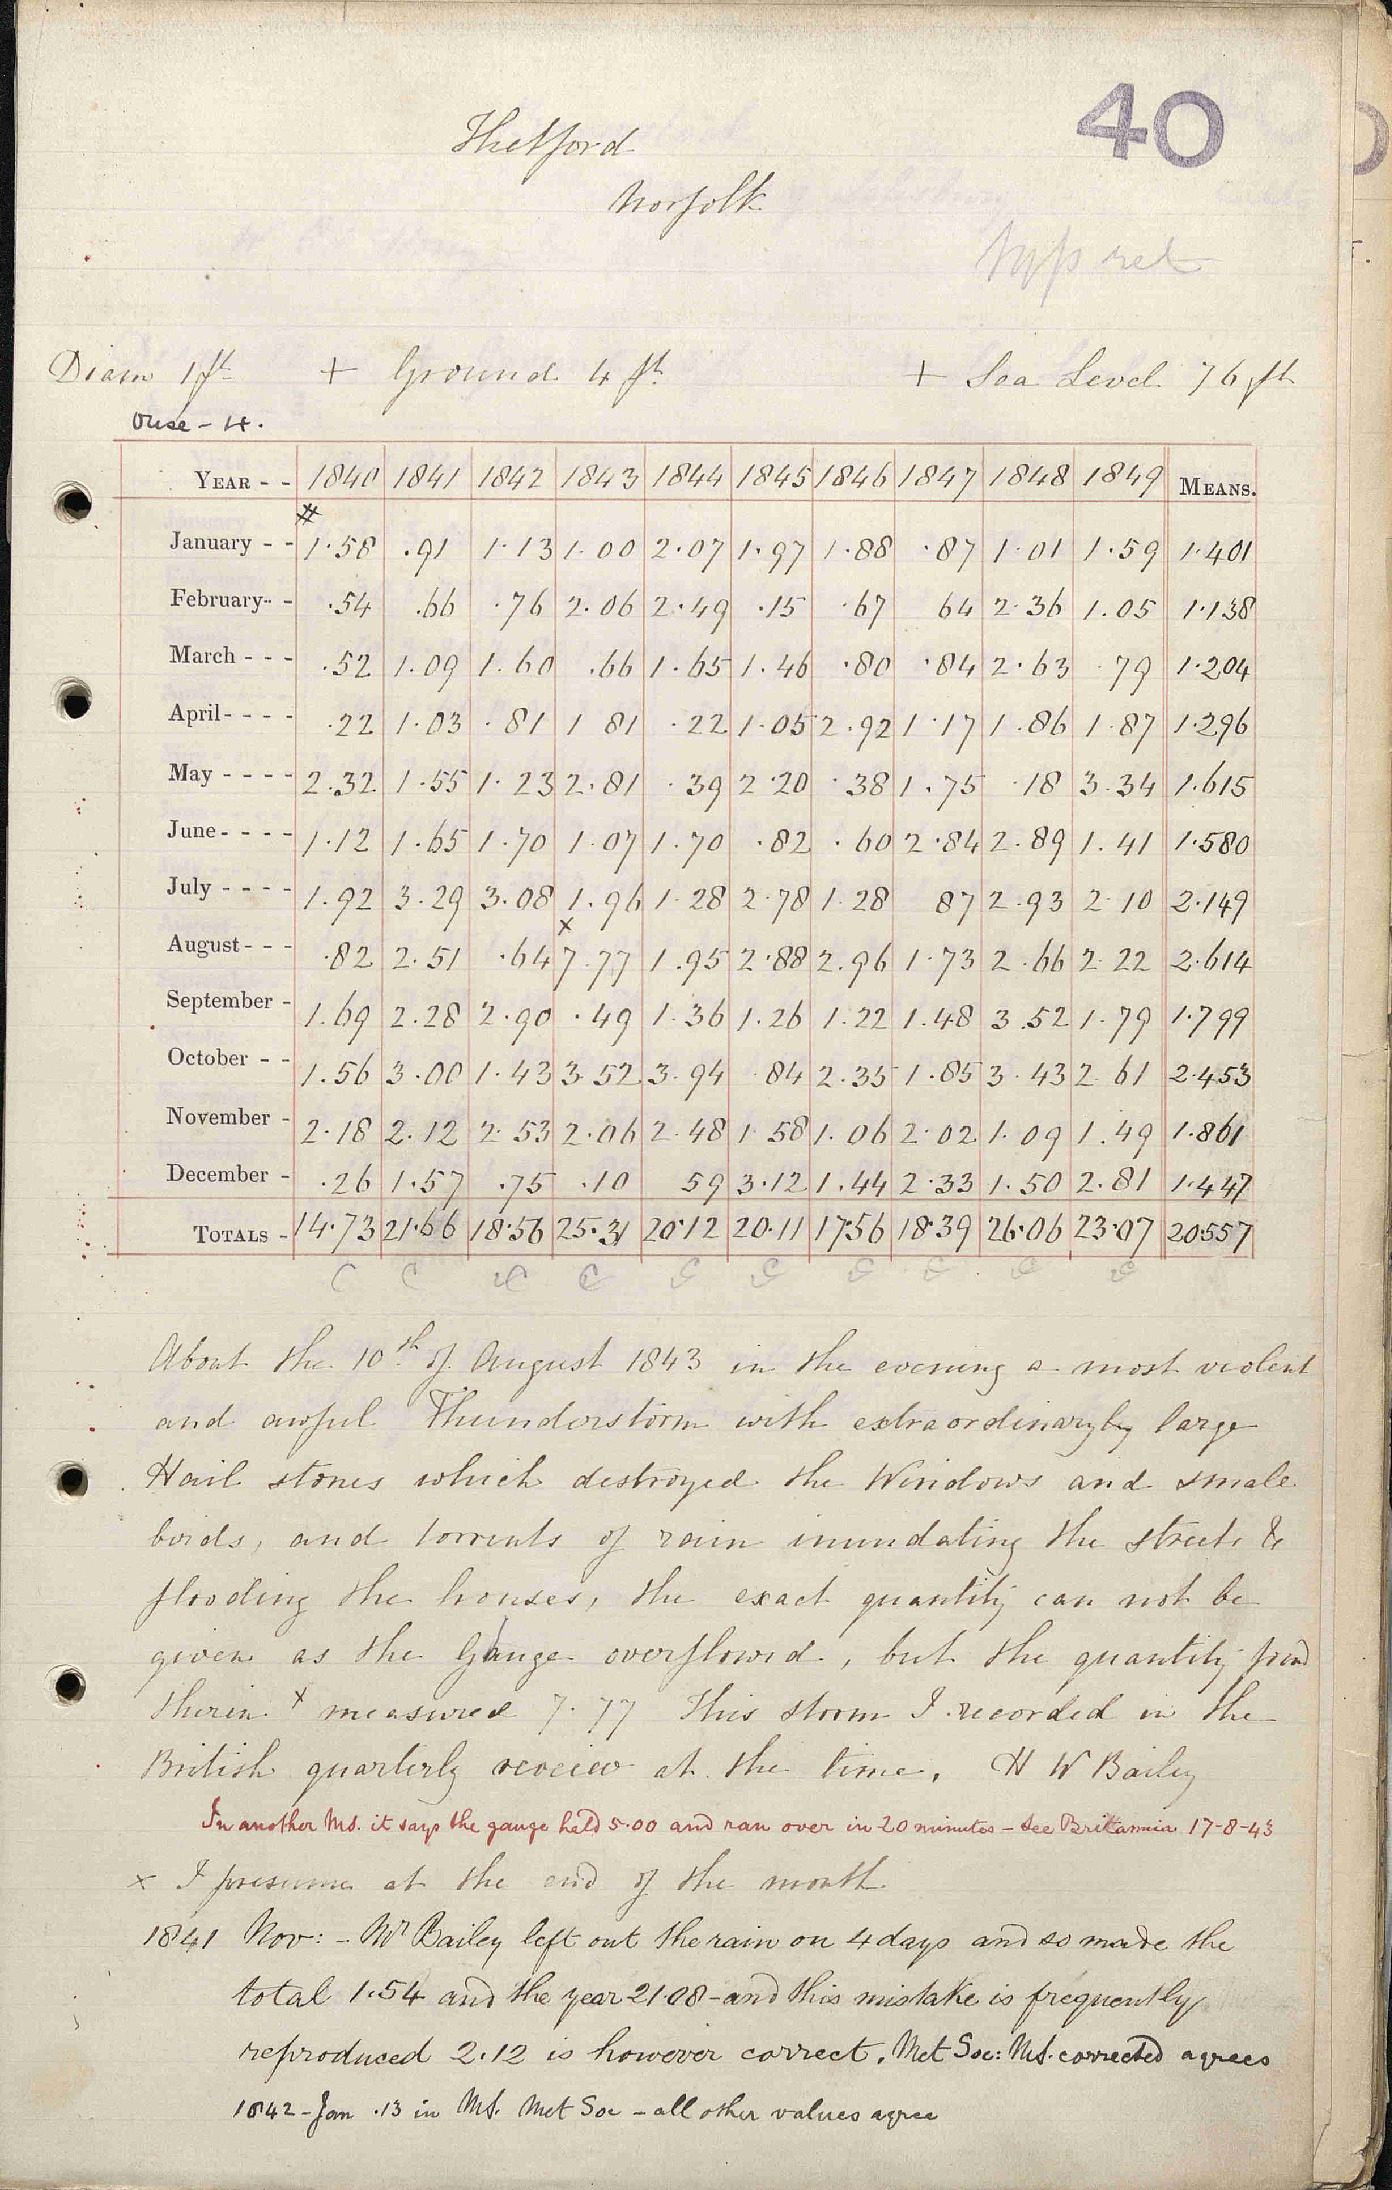 40
Thetford
Norfolk
Diam 1 ft + Ground 4 ft + Sea Level 76 ft
Ouse - H.
YEAR - - 1840 1841 1842 1843 1844 1845 1846 1847 1848 1849 MEANS.
#
January - - 1.58 .91 1.13 1.00 2.07 1.97 1.88 .87 1.01 1.59 1.401
February - - .54 .66 .76 2.06 2.49 .15 .67 64 2.36 1.05 1.138
March - - - .52 1.09 1.60 .66 1.65 1.46 .80 .84 2.63 .79 1.204
April - - - - .22 1.03 .81 1 81 .22 1.05 2.92 1.17 1.86 1.87 1.296
May - - - - 2.32 1.55 1.23 2.81 .39 2.20 .38 1.75 .18 3.34 1.615
June - - - - 1.12 1.65 1.70 1.07 1.70 .82 .60 2.84 2.89 1.41 1.580
July - - - - 1.92 3.29 3.08 1.96 1.28 2.78 1.28 87 2.93 2.10 2.149
August - - - .82 2.51 .64 x 7.77 1.95 2.88 2.96 1.73 2.66 2.22 2.614
September - 1.69 2.28 2.90 .49 1.36 1.26 1.22 1.48 3.52 1.79 1.799
October - - 1.56 3.00 1.43 3.52 3.94 .84 2.35 1.85 3.43 2.61 2.453
November - 2.18 2.12 2.53 2.06 2.48 1.58 1.06 2.02 1.09 1.49 1.861
December - .26 1.57 .75 .10 59 3.12 1.44 2.33 1.50 2.81 1.447
TOTALS - 14.73 21.66 18.56 25.31 20.12 20.11 17.56 18.39 26.06 23.07 20.557
About the 10th of August 1843 in the evening a most violent
and awful Thunderstorm with extraordinaryly large
Hail stones which destroyed the Windows and small
birds, and torrents of rain inundating the streets &
flooding the houses, the exact quantity can not be
given as the Gauge overflowed, but the quantity found
therein x measured 7.77 This storm I recorded in the
British quarterly review at the time. H W Bailey
In another MS. it says the gauge held 5.00 and ran over in 20 minutes - see Britannia 17-8-43
x I presume at the end of the month
1841 Nov: - Mr Bailey left out the rain on 4 days and so made the
total 1.54 and the year 21.08 - and this mistake is frequently
reproduced 2.12 is however correct. Met Soc: MS. corrected agrees
1842 - Jan .13 in MS. Met Soc - all other values agree